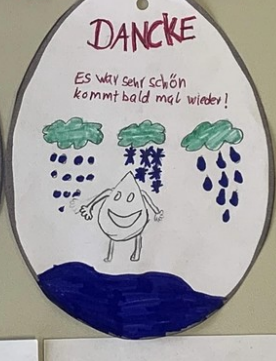 DANCKE
Es war sehr schön
kommt bald mal wieder!